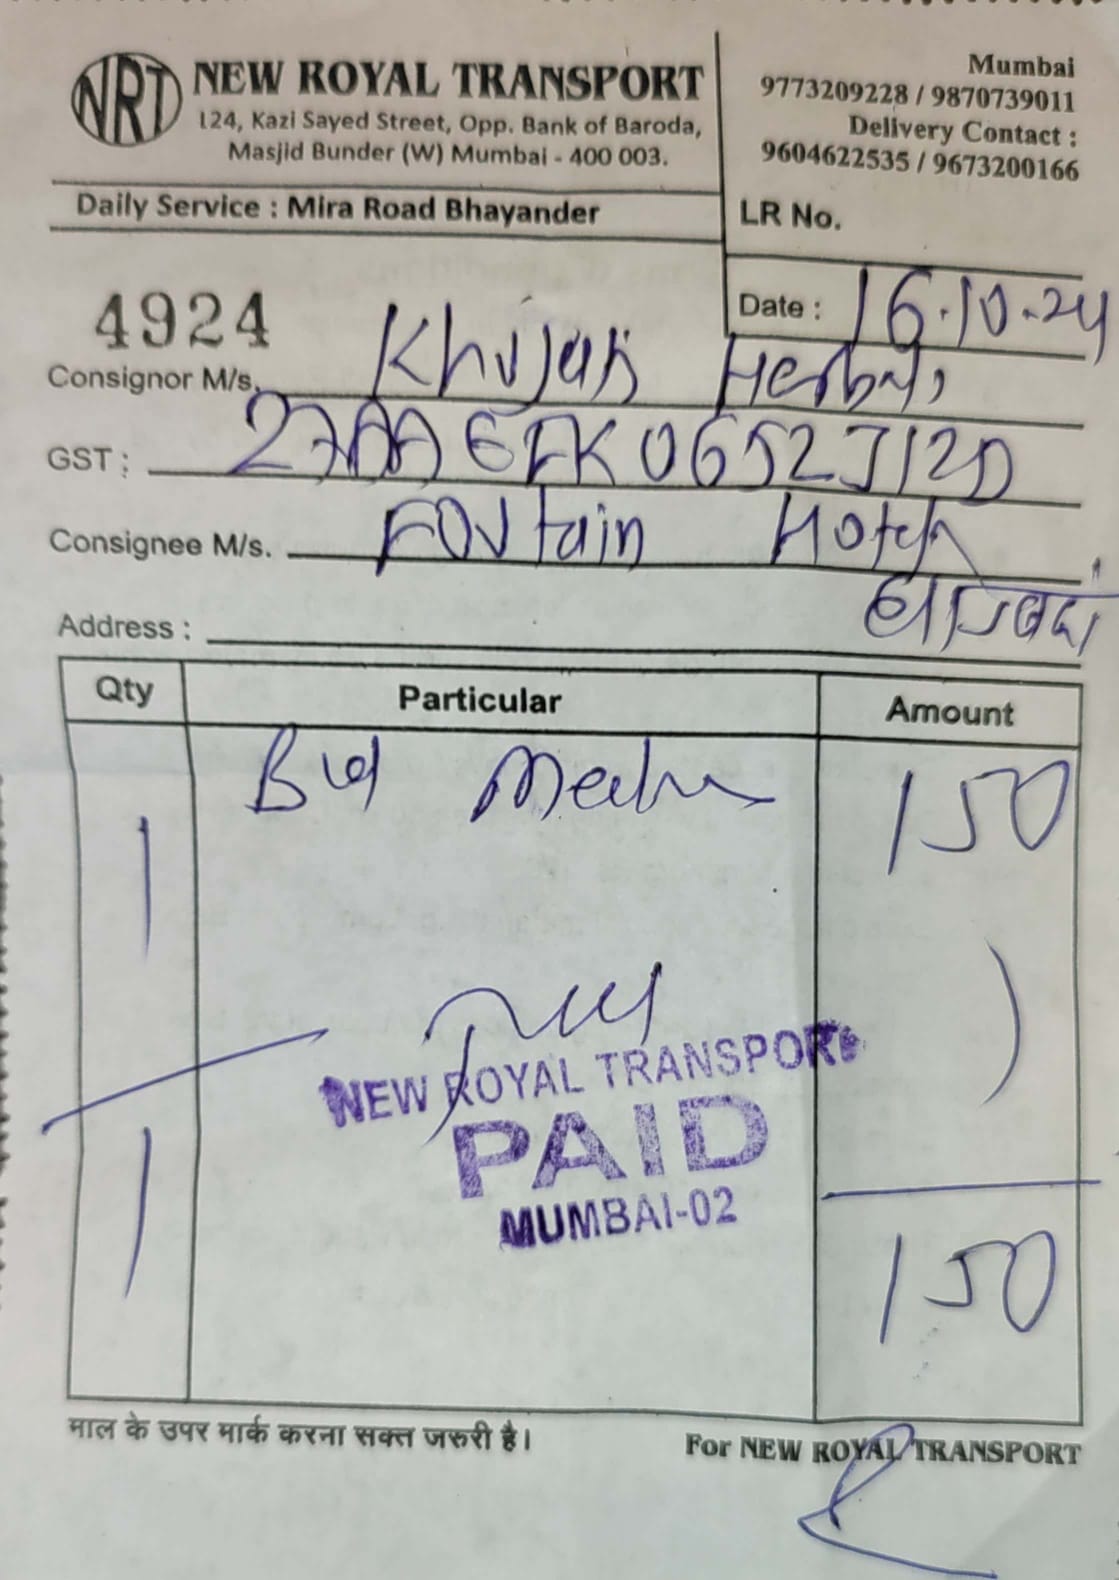 NRT NEW ROYAL TRANSPORT
124, Kazi Sayed Street, Opp. Bank of Baroda,
Masjid Bunder (W) Mumbai - 400 003.
Daily Service : Mira Road Bhayander
Mumbai
9773209228 / 9870739011
Delivery Contact :
9604622535 / 9673200166
LR No.
Date : 16.10.24
4924
Consignor M/s. Herbal
GST :
Consignee M/s. Fountain Hotel
Address :
Qty Particular Amount
1 150
NEW ROYAL TRANSPORT
PAID
MUMBAI-02
1 150
माल के उपर मार्क करना सक्त जरुरी है।
For NEW ROYAL TRANSPORT